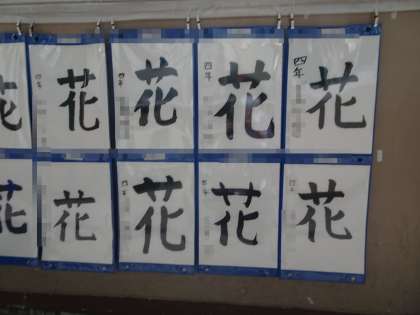 花
花
四年
花
花
四年
花
四年
花
花
花
四年
花
四年
花
四年
花